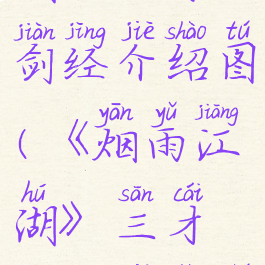 jiàn jīng jiè shào tú
剑经介绍图
yān yǔ jiāng
(《烟雨江
hú sān cái
湖》三才